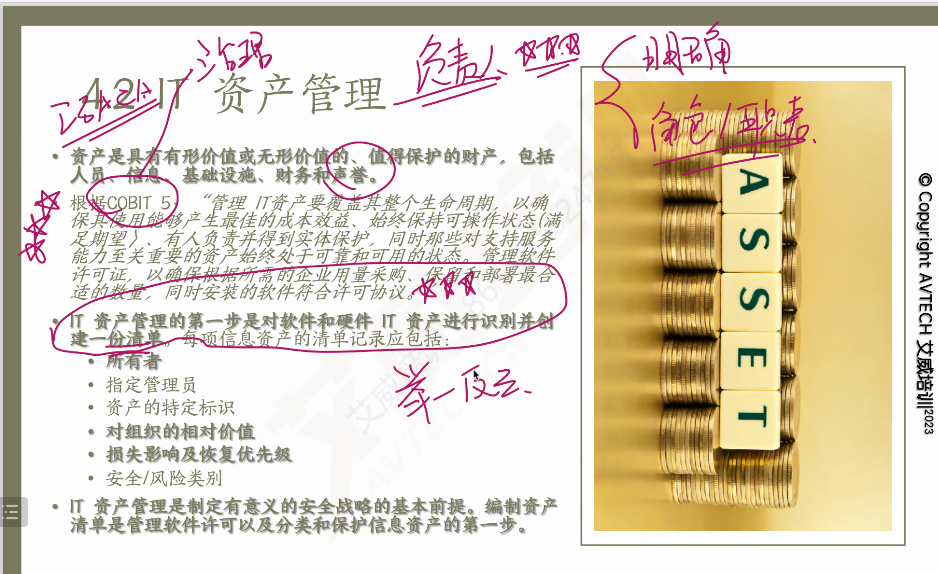 治理
负责人
明确
4.2 IT 资产管理
角色/职责
• 资产是具有有形价值或无形价值的、值得保护的财产，包括
人员、信息、基础设施、财务和声誉。
根据COBIT 5，“管理 IT资产要覆盖其整个生命周期，以确
保其使用能够产生最佳的成本效益、始终保持可操作状态(满
足期望）、有人负责并得到实体保护，同时那些对支持服务
能力至关重要的资产始终处于可靠和可用的状态。管理软件
许可证，以确保根据所需的企业用量采购、保留和部署最合
适的数量，同时安装的软件符合许可协议。
• IT 资产管理的第一步是对软件和硬件 IT 资产进行识别并创
建一份清单。每项信息资产的清单记录应包括：
• 所有者
• 指定管理员
• 资产的特定标识
• 对组织的相对价值
• 损失影响及恢复优先级
• 安全/风险类别
举一反三
• IT 资产管理是制定有意义的安全战略的基本前提。编制资产
清单是管理软件许可以及分类和保护信息资产的第一步。
ASSET
© Copyright AVTECH 艾威培训2023